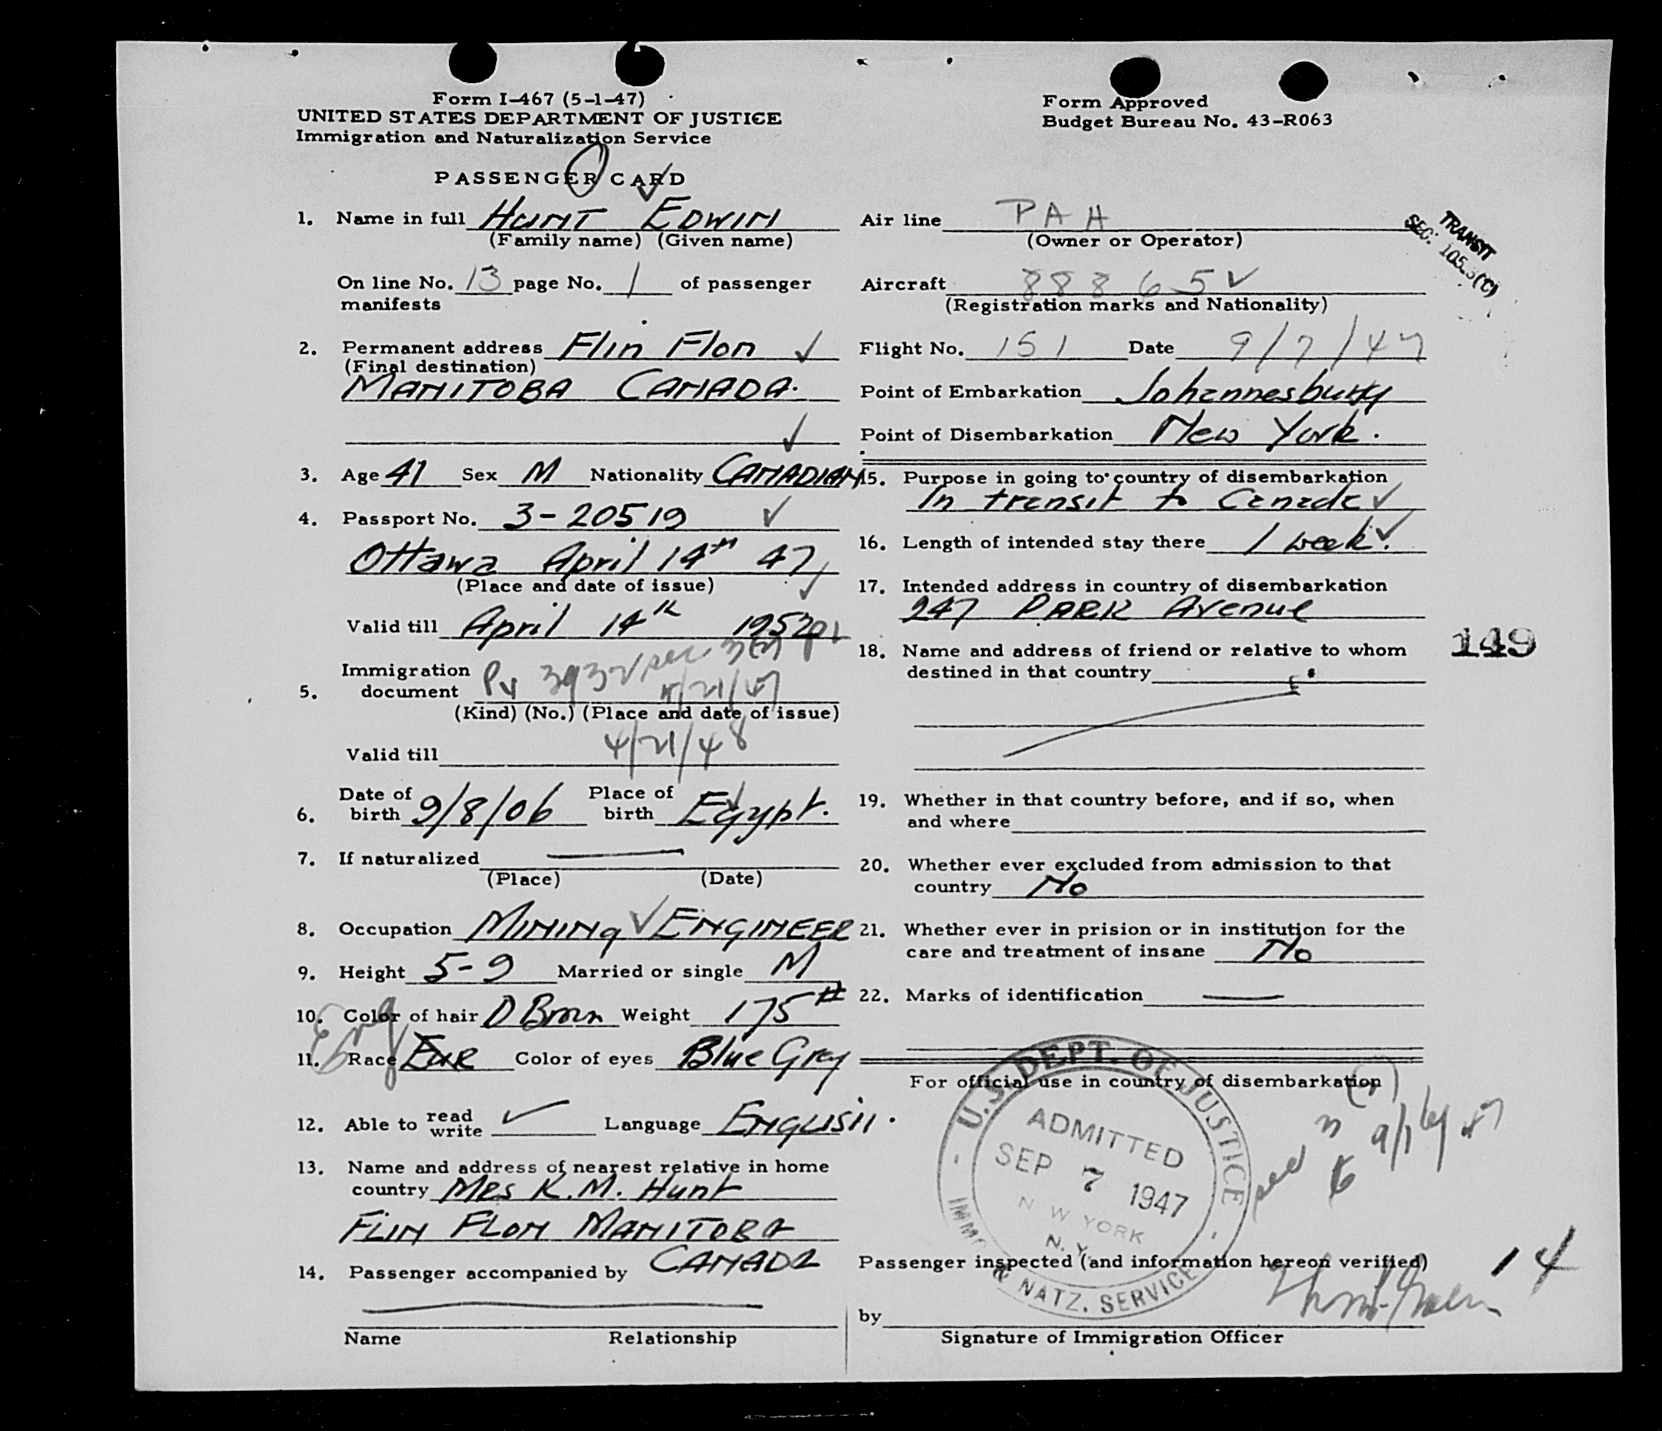 Form I-467 (5-1-47)
UNITED STATES DEPARTMENT OF JUSTICE
Immigration and Naturalization Service
PASSENGER CARD
Form Approved
Budget Bureau No. 43-R063
1. Name in full HUNT EDWIN
(Family name) (Given name)
On line No. 13 page No. 1 of passenger
manifests
2. Permanent address Flin Flon
(Final destination)
MANITOBA CANADA.
3. Age 41 Sex M Nationality CANADIAN
4. Passport No. 3-20519
Ottawa April 14th 47
(Place and date of issue)
Valid till April 14th 1952
Immigration
5. document
4/21/47
(Kind) (No.) (Place and date of issue)
Valid till 4/21/48
Date of Place of
6. birth 9/8/06 birth Egypt.
7. If naturalized
(Place) (Date)
8. Occupation MINING ENGINEER
9. Height 5-9 Married or single M
10. Color of hair D Brown Weight 175#
Eng
11. Race EUR Color of eyes Blue Grey
12. Able to read write Language ENGLISH.
13. Name and address of nearest relative in home
country MRS K.M. Hunt
FLIN FLON MANITOBA
CANADA
14. Passenger accompanied by
Name Relationship
Air line PAA
(Owner or Operator)
Aircraft 88865
(Registration marks and Nationality)
Flight No. 151 Date 9/7/47
Point of Embarkation Johannesburg
Point of Disembarkation New York.
TRANSIT
15. Purpose in going to country of disembarkation
In transit to Canada
16. Length of intended stay there 1 week.
17. Intended address in country of disembarkation
247 PARK Avenue
18. Name and address of friend or relative to whom
destined in that country
149
19. Whether in that country before, and if so, when
and where
20. Whether ever excluded from admission to that
country No
21. Whether ever in prision or in institution for the
care and treatment of insane No
22. Marks of identification
For official use in country of disembarkation
U.S. DEPT. OF JUSTICE
ADMITTED
SEP 7 1947
N W YORK
N.Y.
IMM & NATZ. SERVICE
Passenger inspected (and information hereon verified)
14
by
Signature of Immigration Officer